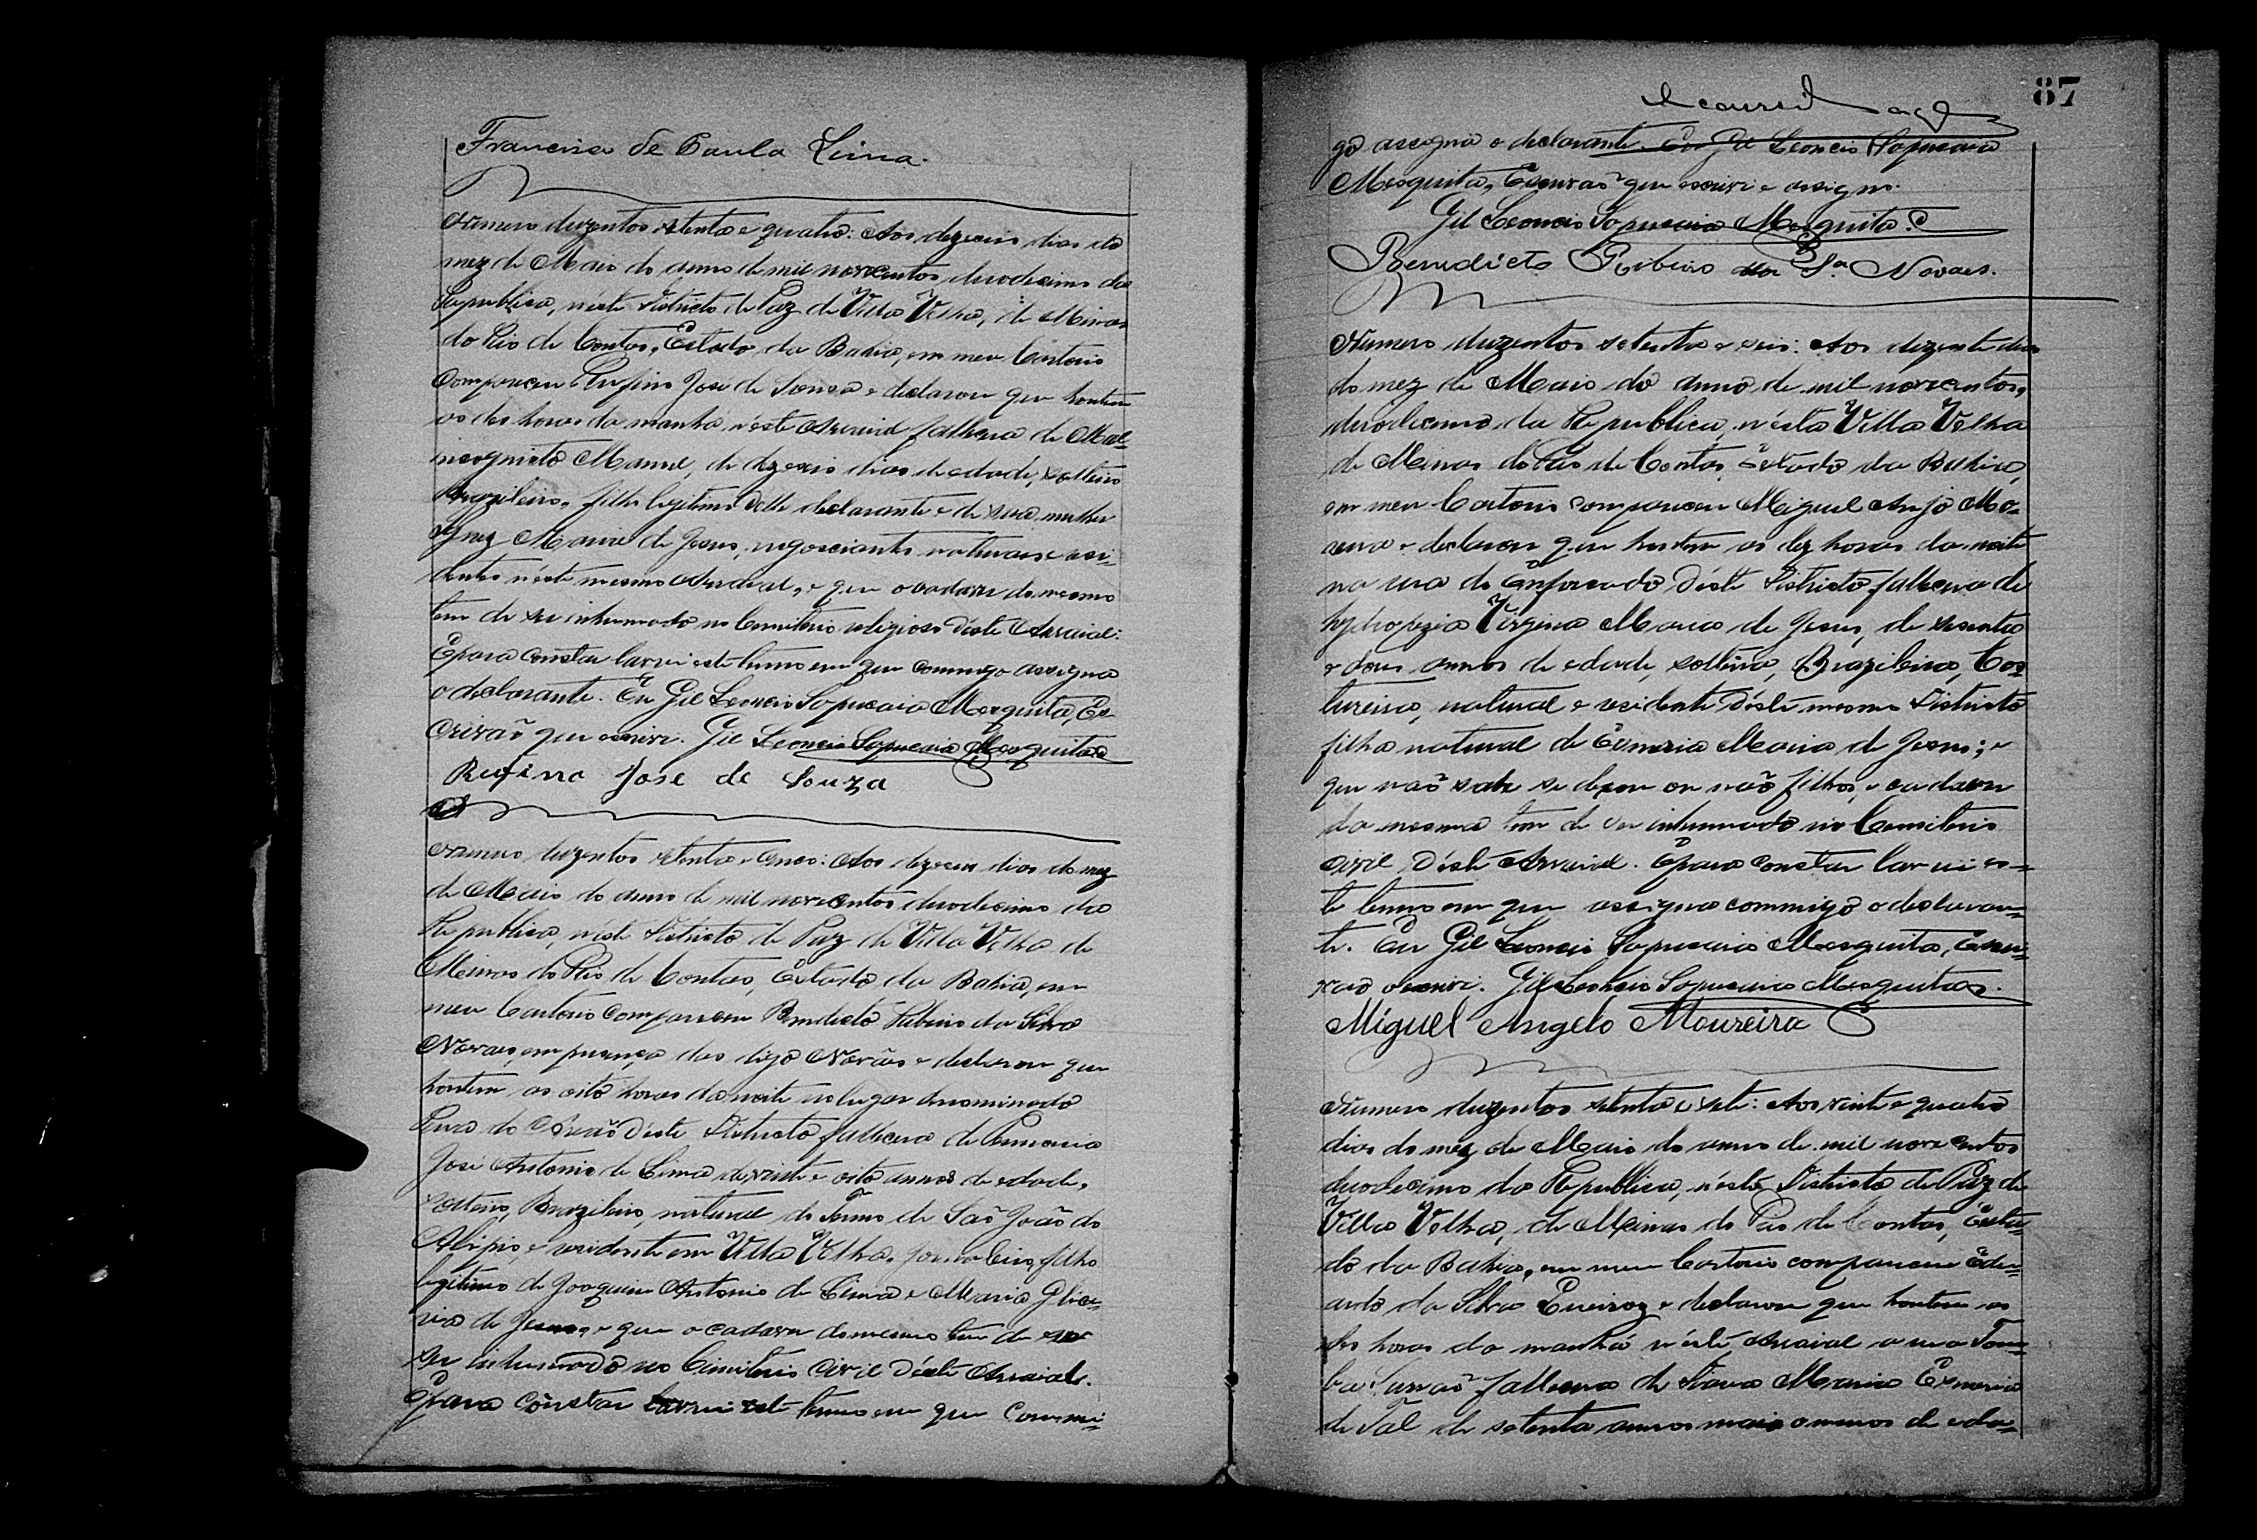 Francisco de Paula Lima.
Numero duzentos setenta e quatro: Aos dezeseis dias do
mez de Maio do anno de mil novecentos, duodecimo da
Republica, neste Districto de Paz de Villa Velha, de Minas
do Rio de Contas, Estado da Bahia, em meu Cartorio
compareceu Rufino José de Souza e declarou que hontem
as dez horas da manhã n'este Arraial fallecera de Mal
incognito Manoel, de dezeseis dias de edade, solteiro
Brazileiro, filho legitimo delle declarante e de sua mulher
Ignez Maria de Jesus, negociantes naturaes e resi-
dentes n'este mesmo Arraial, e que o cadaver do mesmo
tem de ser inhumado no Cemiterio religioso d'este Arraial:
E para constar lavrei este termo em que commigo assigna
o declarante. Eu Gil Leoncio Sapucaia Mesquita, Es-
crivão que escrevi. Gil Leoncio Sapucaia Mesquita
Rufino Jose de Souza
Numero duzentos setenta e cinco: Aos dezeseis dias do mez
de Maio do anno de mil novecentos duodecimo da
Republica, n'este Districto de Paz de Villa Velha de
Minas do Rio de Contas, Estado da Bahia, em
meu Cartorio compareceu Benedicto Ribeiro da Silva
Novaes, em presença das digo Novaes e declarou que
hontem, as oito horas da noite no lugar denominado
do d'este Districto fallecera de
José Antonio de Lima de vinte e oito annos de edade,
solteiro, Brazileiro, natural do Termo de São João do
Alipio, e residente em Villa Velha, jornaleiro, filho
legitimo de Joaquim Antonio de Lima e Maria Glice-
ria de Jesus, e que o cadaver do mesmo tem de ser
ser inhumado no Cimiterio Civil d'este Arraial.
E para constar lavrei este termo em que commi-
87
go assigna o declarante. Eu Gil Leoncio Sapucaia
Mesquita, Escrivão que escrevi e assigno.
Gil Leoncio Sapucaia Mesquita.
Benedicto Ribeiro da Sa Novaes.
Numero duzentos setenta e seis: Aos dezesete dias
do mez de Maio do anno de mil novecentos,
duodecimo da Republica, n'esta Villa Velha
de Minas do Rio de Contas, Estado da Bahia,
em meu Cartorio compareceu Miguel Anjo Mo-
reira e declarou que hontem as dez horas da noite
na rua do Enforcado d'este Districto fallecera de
hydropezia Virginia Maria de Jesus, de sesenta
e dous annos de edade, solteira, Brazileira, Cos-
tureira, natural e residente d'este mesmo Districto
filha natural de Esmeria Maria de Jesus; e
que não sabe se deixou ou não filhos, e o cadaver
da mesma tem de ser inhumado no Cemiterio
civil d'este Arraial. E para constar lavrei es-
te termo em que assigna commigo o declaran-
te. Eu Gil Leoncio Sapucaia Mesquita, Escri-
vão escrevi. Gil Leoncio Sapucaia Mesquita.
Miguel Angelo Moureira
Numero duzentos setenta e sete: Aos vinte e quatro
dias do mez de Maio do anno de mil novecentos
duodecimo da Republica, n'este Districto de Paz de
Villa Velha, de Minas do Rio de Contas, Esta-
do da Bahia, em meu Cartorio compareceu Edu-
ardo da Silva Queiroz e declarou que hontem as
dez horas da manhã n'este Arraial a rua Tom-
ba Surrão fallecera de Maria Esmeria
de Tal de setenta annos mais o menos de eda-